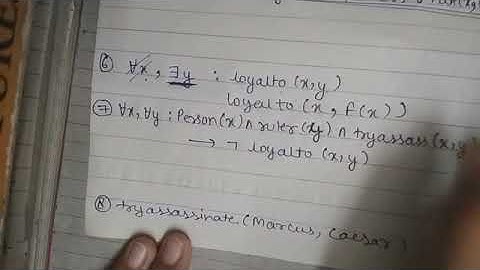 ⑥ ∀x, ∃y : loyalto (x,y)
loyalto (x, f(x))
⑦ ∀x, ∀y : Person(x) ∧ ruler(y) ∧ tryassass(x,y)
→ ¬ loyalto (x,y)
⑧ tryassassinate (Marcus, Caesar)